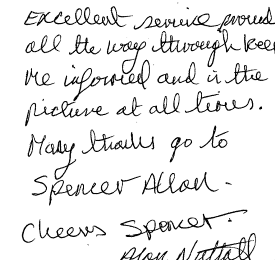 Excellent service provid
all the way through keep
me informed and in the
picture at all times.
Many thanks go to
Spencer Allan.
Cheers Spencer.
Alan Nuttall